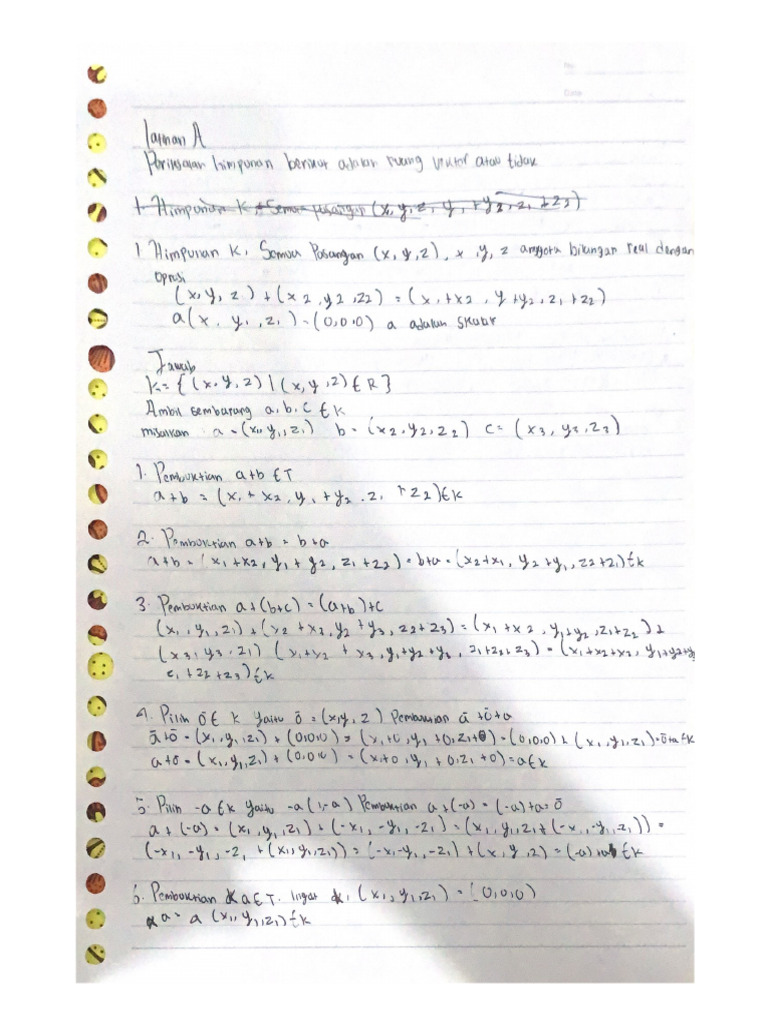 No
Date
Latihan A
Periksalah himpunan berikut adalah ruang vektor atau tidak
1. Himpunan K, Semua pasangan (x, y, z, y, + y2, z1, + z2)
1. Himpunan K, Semua Pasangan (x, y, z), x, y, z anggota bilangan real dengan
Oprasi
(x, y, z) + (x2, y2, z2) = (x, +x2, y + y2, z1 + z2)
a(x, y1, z1) = (0,0,0) a adalah skalar
Jawab
K = { (x, y, z) | (x, y, z) ∈ R }
Ambil sembarang a, b, c ∈ K
misalkan : a = (x1, y1, z1) b = (x2, y2, z2) c = (x3, y3, z3)
1. Pembuktian a+b ∈ T
a+b = (x1 + x2, y1 + y2, z1 + z2) ∈ K
2. Pembuktian a+b = b+a
a+b = (x1 + x2, y1 + y2, z1 + z2) = b+a = (x2+x1, y2+y1, z2+z1) ∈ K
3. Pembuktian a+(b+c) = (a+b)+c
(x1, y1, z1) + (x2 + x3, y2 + y3, z2+z3) = (x1 + x2, y1+y2, z1+z2) +
(x3, y3, z1) (x1+x2 + x3, y1+y2+y3, z1+z2+z3) = (x1+x2+x3, y1+y2+y
z1 + z2 + z3) ∈ K
4. Pilih ō ∈ K yaitu ō = (x, y, z) Pembuktian ā + ō + a
ā+ō = (x1, y1, z1) + (0,0,0) = (x1+0, y1 + 0, z1+0) = (0,0,0) + (x1, y1, z1) = ō+a ∈ K
a+ō = (x1, y1, z1) + (0,0,0) = (x1+0, y1 + 0, z1 + 0) = a ∈ K
5. Pilih -a ∈ K yaitu -a (1,-a) Pembuktian a + (-a) = (-a)+a = ō
a + (-a) = (x1, y1, z1) + (-x1, -y1, -z1) = (x1, y1, z1 + (-x1, -y1, z1)) =
(-x1, -y1, -z, + (x1, y1, z1)) = (-x, -y1, -z1) + (x, y, z) = (-a) + a ∈ K
6. Pembuktian αa ∈ T. Ingat α, (x1, y1, z1) = (0,0,0)
αa = a (x1, y1, z1) ∈ K